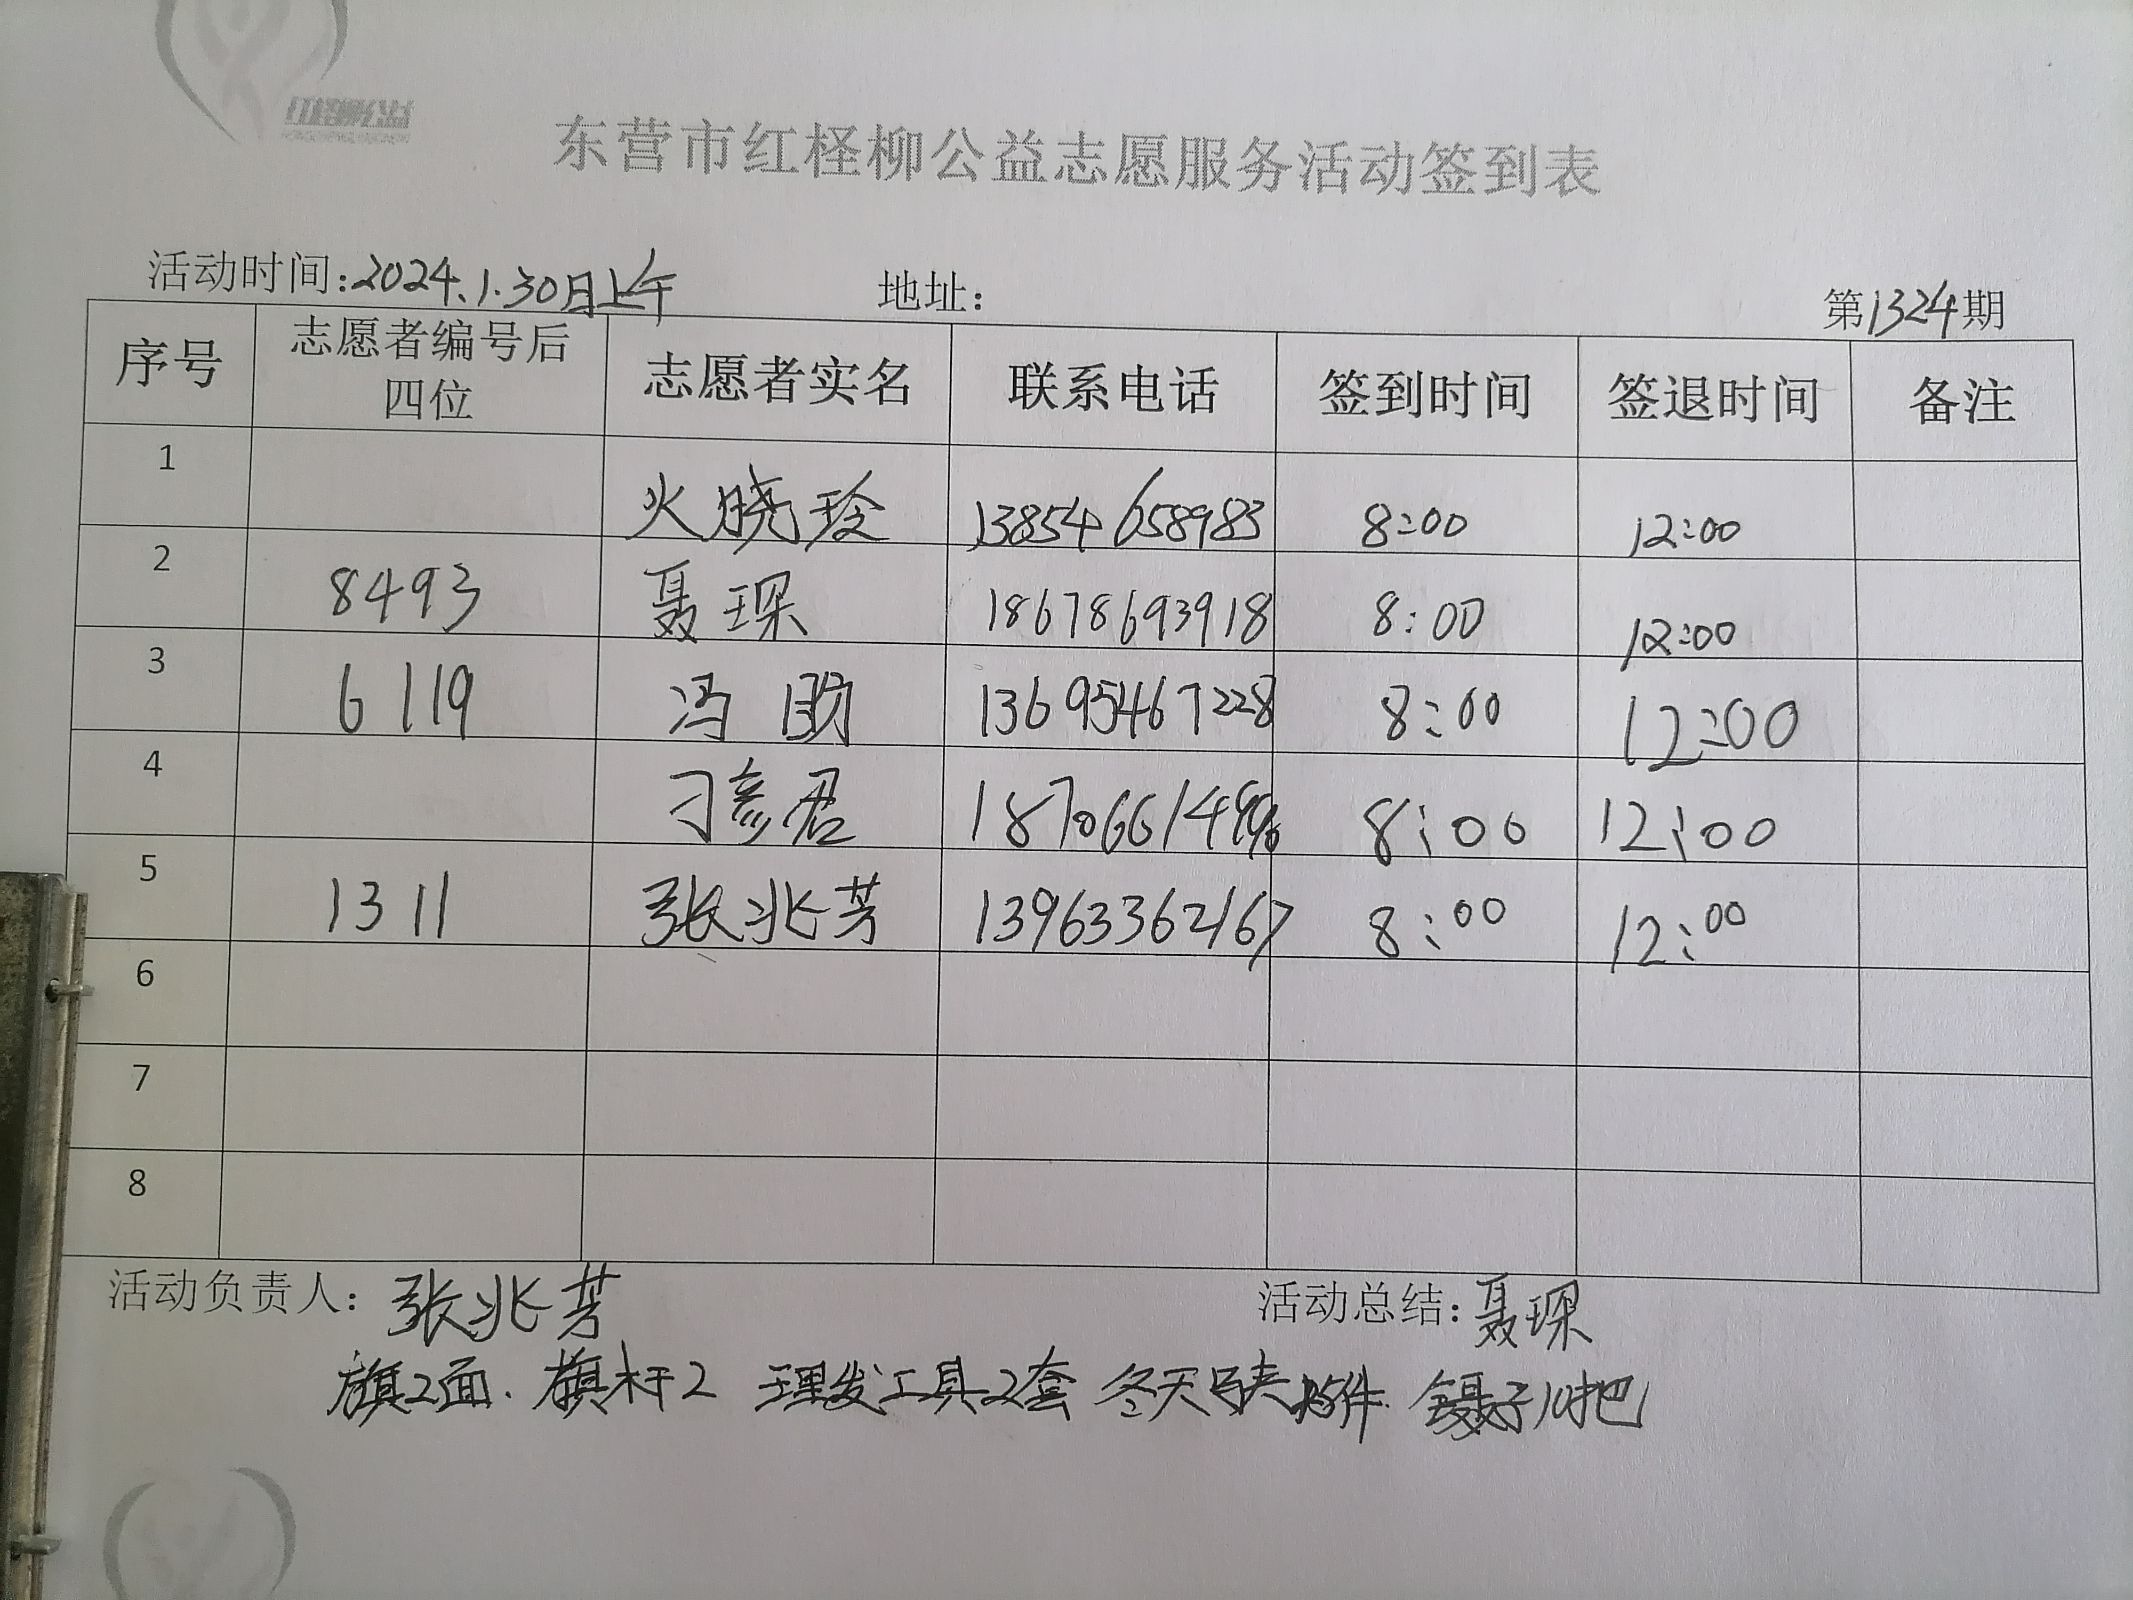 红柽柳公益
东营市红柽柳公益志愿服务活动签到表
活动时间:2024.1.30日上午 地址: 第1324期
序号 志愿者编号后四位 志愿者实名 联系电话 签到时间 签退时间 备注
1 火晓玲 13854658983 8:00 12:00
2 8493 聂琛 18678693918 8:00 12:00
3 6119 冯 13695467228 8:00 12:00
4 刁彦君 187066149 8:00 12:00
5 1311 张兆芳 13963362167 8:00 12:00
6
7
8
活动负责人: 张兆芳 活动总结: 聂琛
旗2面. 旗杆2 理发工具2套 冬天马夹 件. 镊子10把